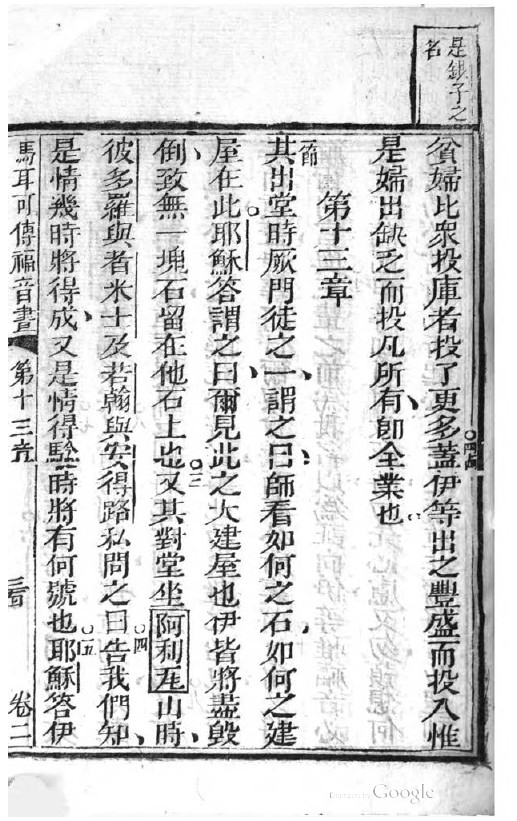 是銀子之
名
貧婦比衆投庫者投了更多蓋○四四伊等出之豐盛而投入惟
是婦出缺乏而投凡所有卽全業也
第十三章
一節其出堂時厥門徒之一謂之曰師看如何之石如何之建
屋在此○二耶穌答謂之曰爾見此之大建屋也伊皆將盡毀
倒致無一塊石留在他石上也○三又其對堂坐阿利瓦山時
彼多羅與者米士及若翰與安得路私問之曰○四告我們知
是情幾時將得成又是情得騐時將有何號也○五耶穌答伊
馬耳可傳福音書 第十三章 三音 卷二
Digitized by Google